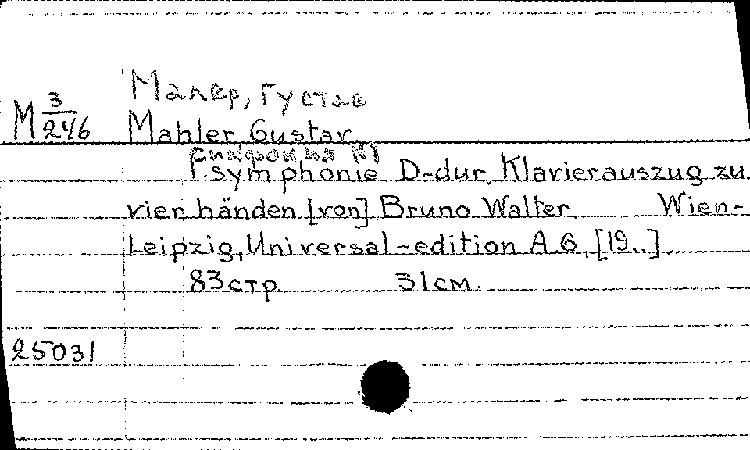 Малер, Густав
М 3/246 Mahler, Gustav
Симфония №1
I symphonie D-dur. Klavierauszug zu
vier händen [von] Bruno Walter. Wien-
Leipzig, Universal-edition A.G. [19..].
83стр. 31см.
25031